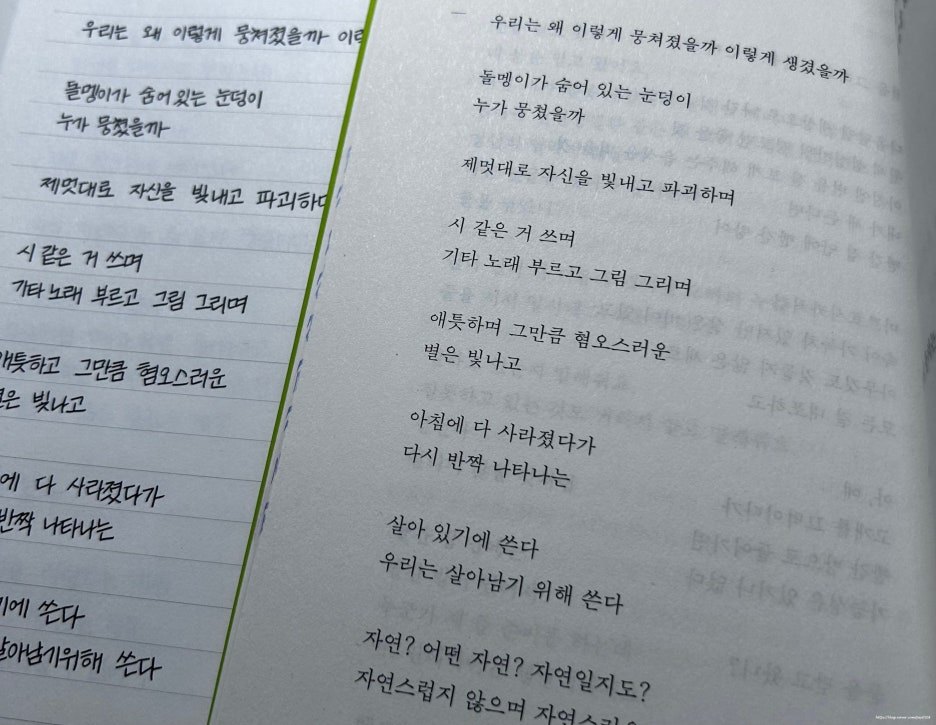 우리는 왜 이렇게 뭉쳐졌을까 이렇
돌멩이가 숨어 있는 눈덩이
누가 뭉쳤을까
제멋대로 자신을 빛내고 파괴하
시 같은 거 쓰며
기타 노래 부르고 그림 그리며
애틋하고 그만큼 혐오스러운
빛나고
에 다 사라졌다가
반짝 나타나는
기에 쓴다
살아남기위해 쓴다
우리는 왜 이렇게 뭉쳐졌을까 이렇게 생겼을까
돌멩이가 숨어 있는 눈덩이
누가 뭉쳤을까
제멋대로 자신을 빛내고 파괴하며
시 같은 거 쓰며
기타 노래 부르고 그림 그리며
애틋하며 그만큼 혐오스러운
별은 빛나고
아침에 다 사라졌다가
다시 반짝 나타나는
살아 있기에 쓴다
우리는 살아남기 위해 쓴다
자연? 어떤 자연? 자연일지도?
자연스럽지 않으며